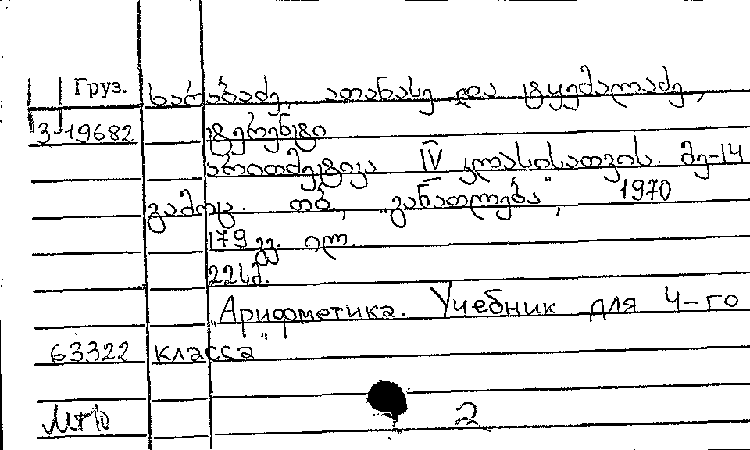 Груз. ხარაბაძე, ათანასე და ტყემალაძე,
3-19682 ტერენტი
არითმეტიკა IV კლასისათვის. მე-14
გამოც. თბ., „განათლება“, 1970
179 გვ. ილ.
22კპ.
„Арифметика. Учебник для 4-го
63322 класса“
2